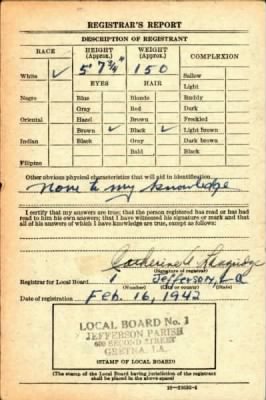 REGISTRAR'S REPORT
DESCRIPTION OF REGISTRANT
RACE HEIGHT (Approx.) WEIGHT (Approx.) COMPLEXION
White ✓ 5' 7¾" 150 Sallow
EYES HAIR Light
Negro Blue Blonde Ruddy
Gray Red Dark
Oriental Hazel Brown Freckled
Brown ✓ Black ✓ Light brown
Indian Black Gray Dark brown
Bald Black
Filipino
Other obvious physical characteristics that will aid in identification
None to my knowledge
I certify that my answers are true; that the person registered has read or has had
read to him his own answers; that I have witnessed his signature or mark and that
all of his answers of which I have knowledge are true, except as follows:
Catherine
(Signature of registrar)
Registrar for Local Board 1 Jefferson, La
(Number) (City or county) (State)
Date of registration Feb. 16, 1942
LOCAL BOARD No. 1
JEFFERSON PARISH
SECOND STREET
GRETNA, LA.
(STAMP OF LOCAL BOARD)
(The stamp of the Local Board having jurisdiction of the registrant
shall be placed in the above space.)